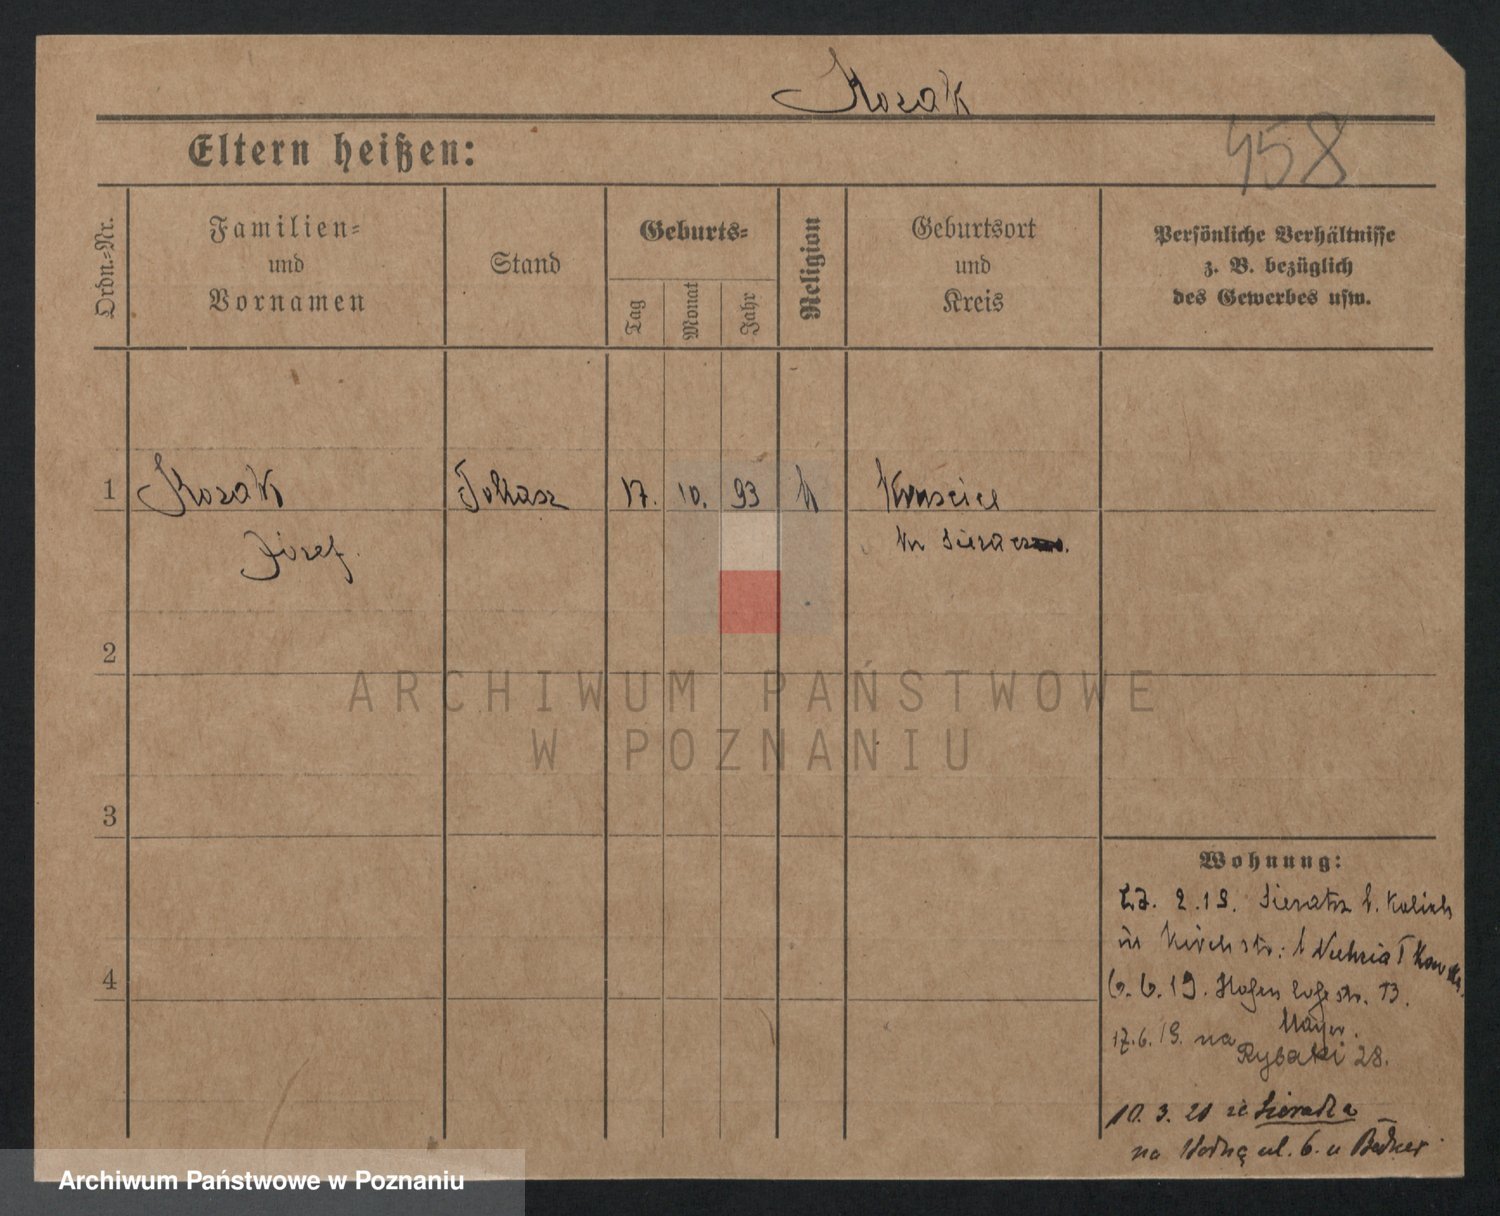 Kozak
Eltern heißen:
458
Ordn.-Nr.
Familien-
und
Vornamen
Stand
Geburts-
Tag
Monat
Jahr
Religion
Geburtsort
und
Kreis
Persönliche Verhältnisse
z. B. bezüglich
des Gewerbes usw.
1
Kozak
17. 10. 93
Józef.
2
ARCHIWUM PAŃSTWOWE
W POZNANIU
3
Wohnung:
2.19. Sieratz b. Kalisch
in Kirchstr:
4
6.6.19. 13.
Mayer.
17.6.19. na
Rybaki 28.
10.3.21 ze Sieradza
na Wodną ul. 6. u
Archiwum Państwowe w Poznaniu